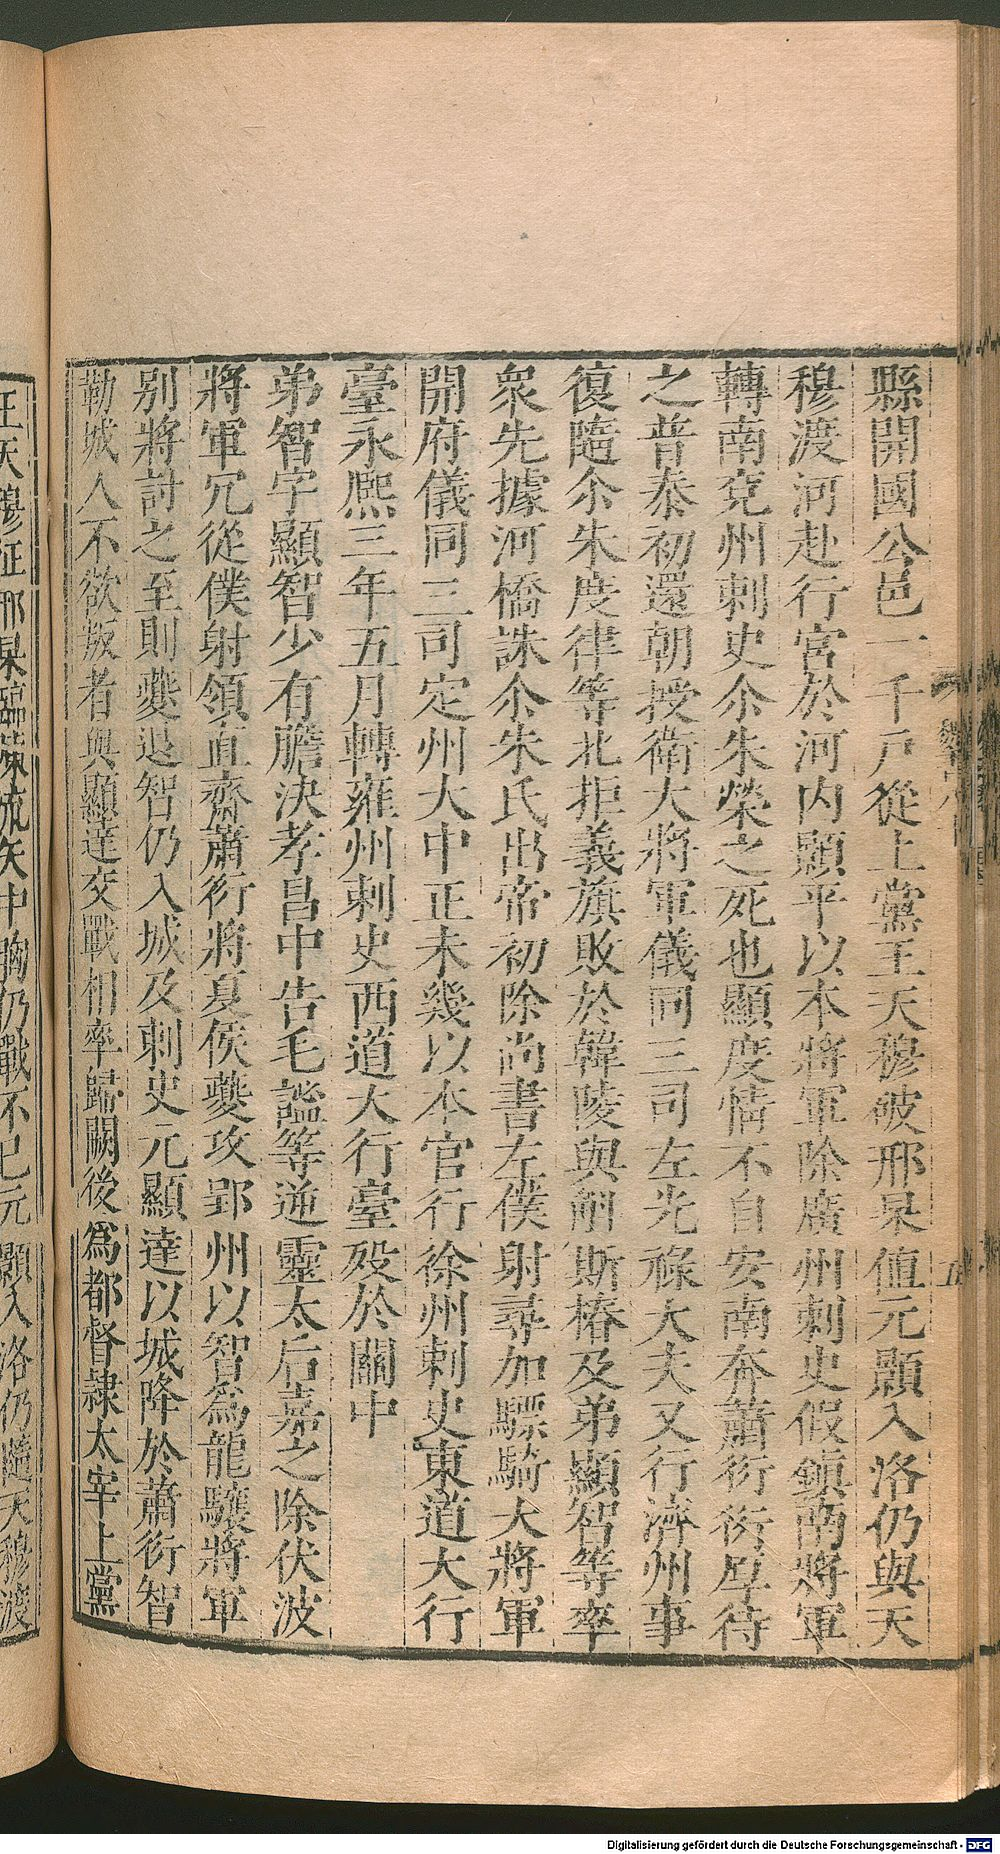 縣開國公邑一千戸從上黨王天穆破邢杲值元顥入洛仍與天
穆渡河赴行宮於河内顥平以本將軍除廣州刺史假鎮南將軍
轉南兖州刺史尒朱榮之死也顯度情不自安南奔蕭衍衍厚待
之普泰初還朝授衛大將軍儀同三司左光祿大夫又行濟州事
復隨尒朱度律等北拒義旗敗於韓陵與斛斯椿及弟顯智等率
衆先據河橋誅尒朱氏出帝初除尚書左僕射尋加驃騎大將軍
開府儀同三司定州大中正未幾以本官行徐州刺史東道大行
臺永熈三年五月轉雍州刺史西道大行臺殁於關中
弟智字顯智少有膽決孝昌中告毛謐等逆靈太后嘉之除伏波
將軍冗從僕射領直齋蕭衍將夏侯夔攻郢州以智爲龍驤將軍
别將討之至則夔退智仍入城及刺史元顯達以城降於蕭衍智
勒城人不欲叛者與顯達交戰相率歸闕後爲都督隷太宰上黨
王天穆征邢杲臨陳流矢中胸仍戰不已元顥入洛仍隨天穆渡
Digitalisierung gefördert durch die Deutsche Forschungsgemeinschaft - DFG